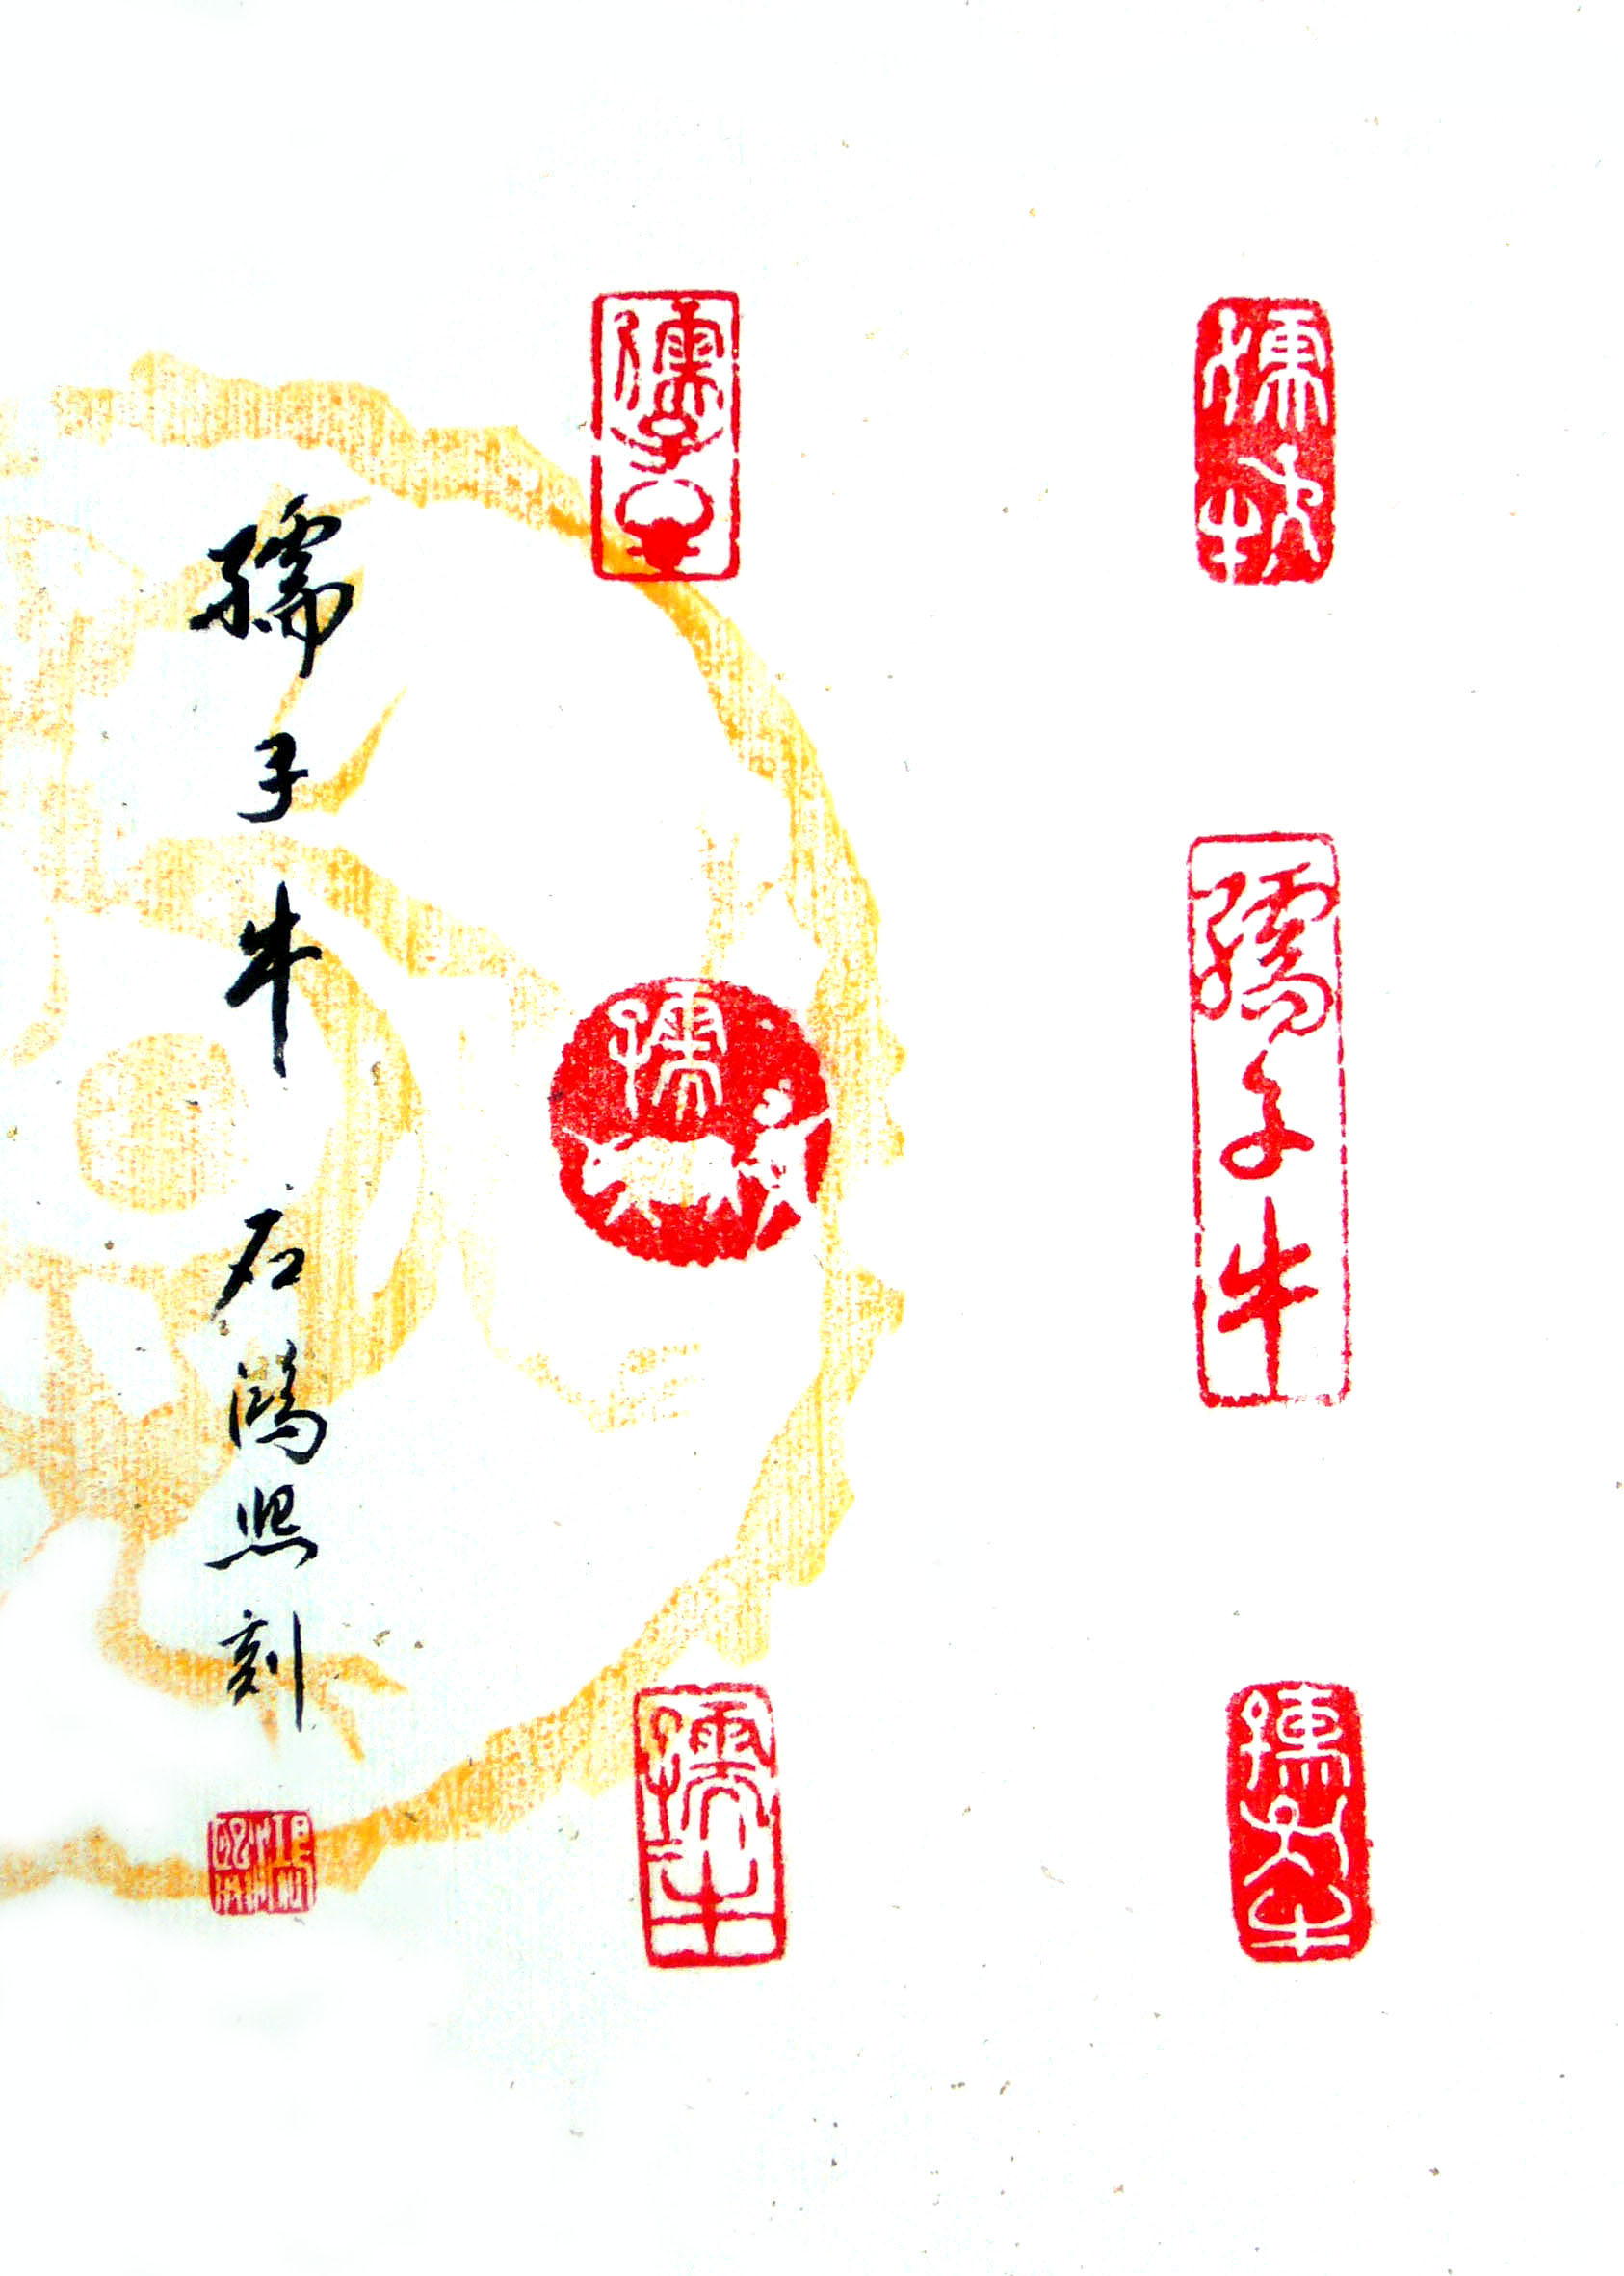 孺子牛
孺子牛
孺子牛
孺子牛
孺
孺子牛
孺子牛 石鸿照刻